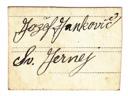 Jozef Jankovič
Sv. Jernej